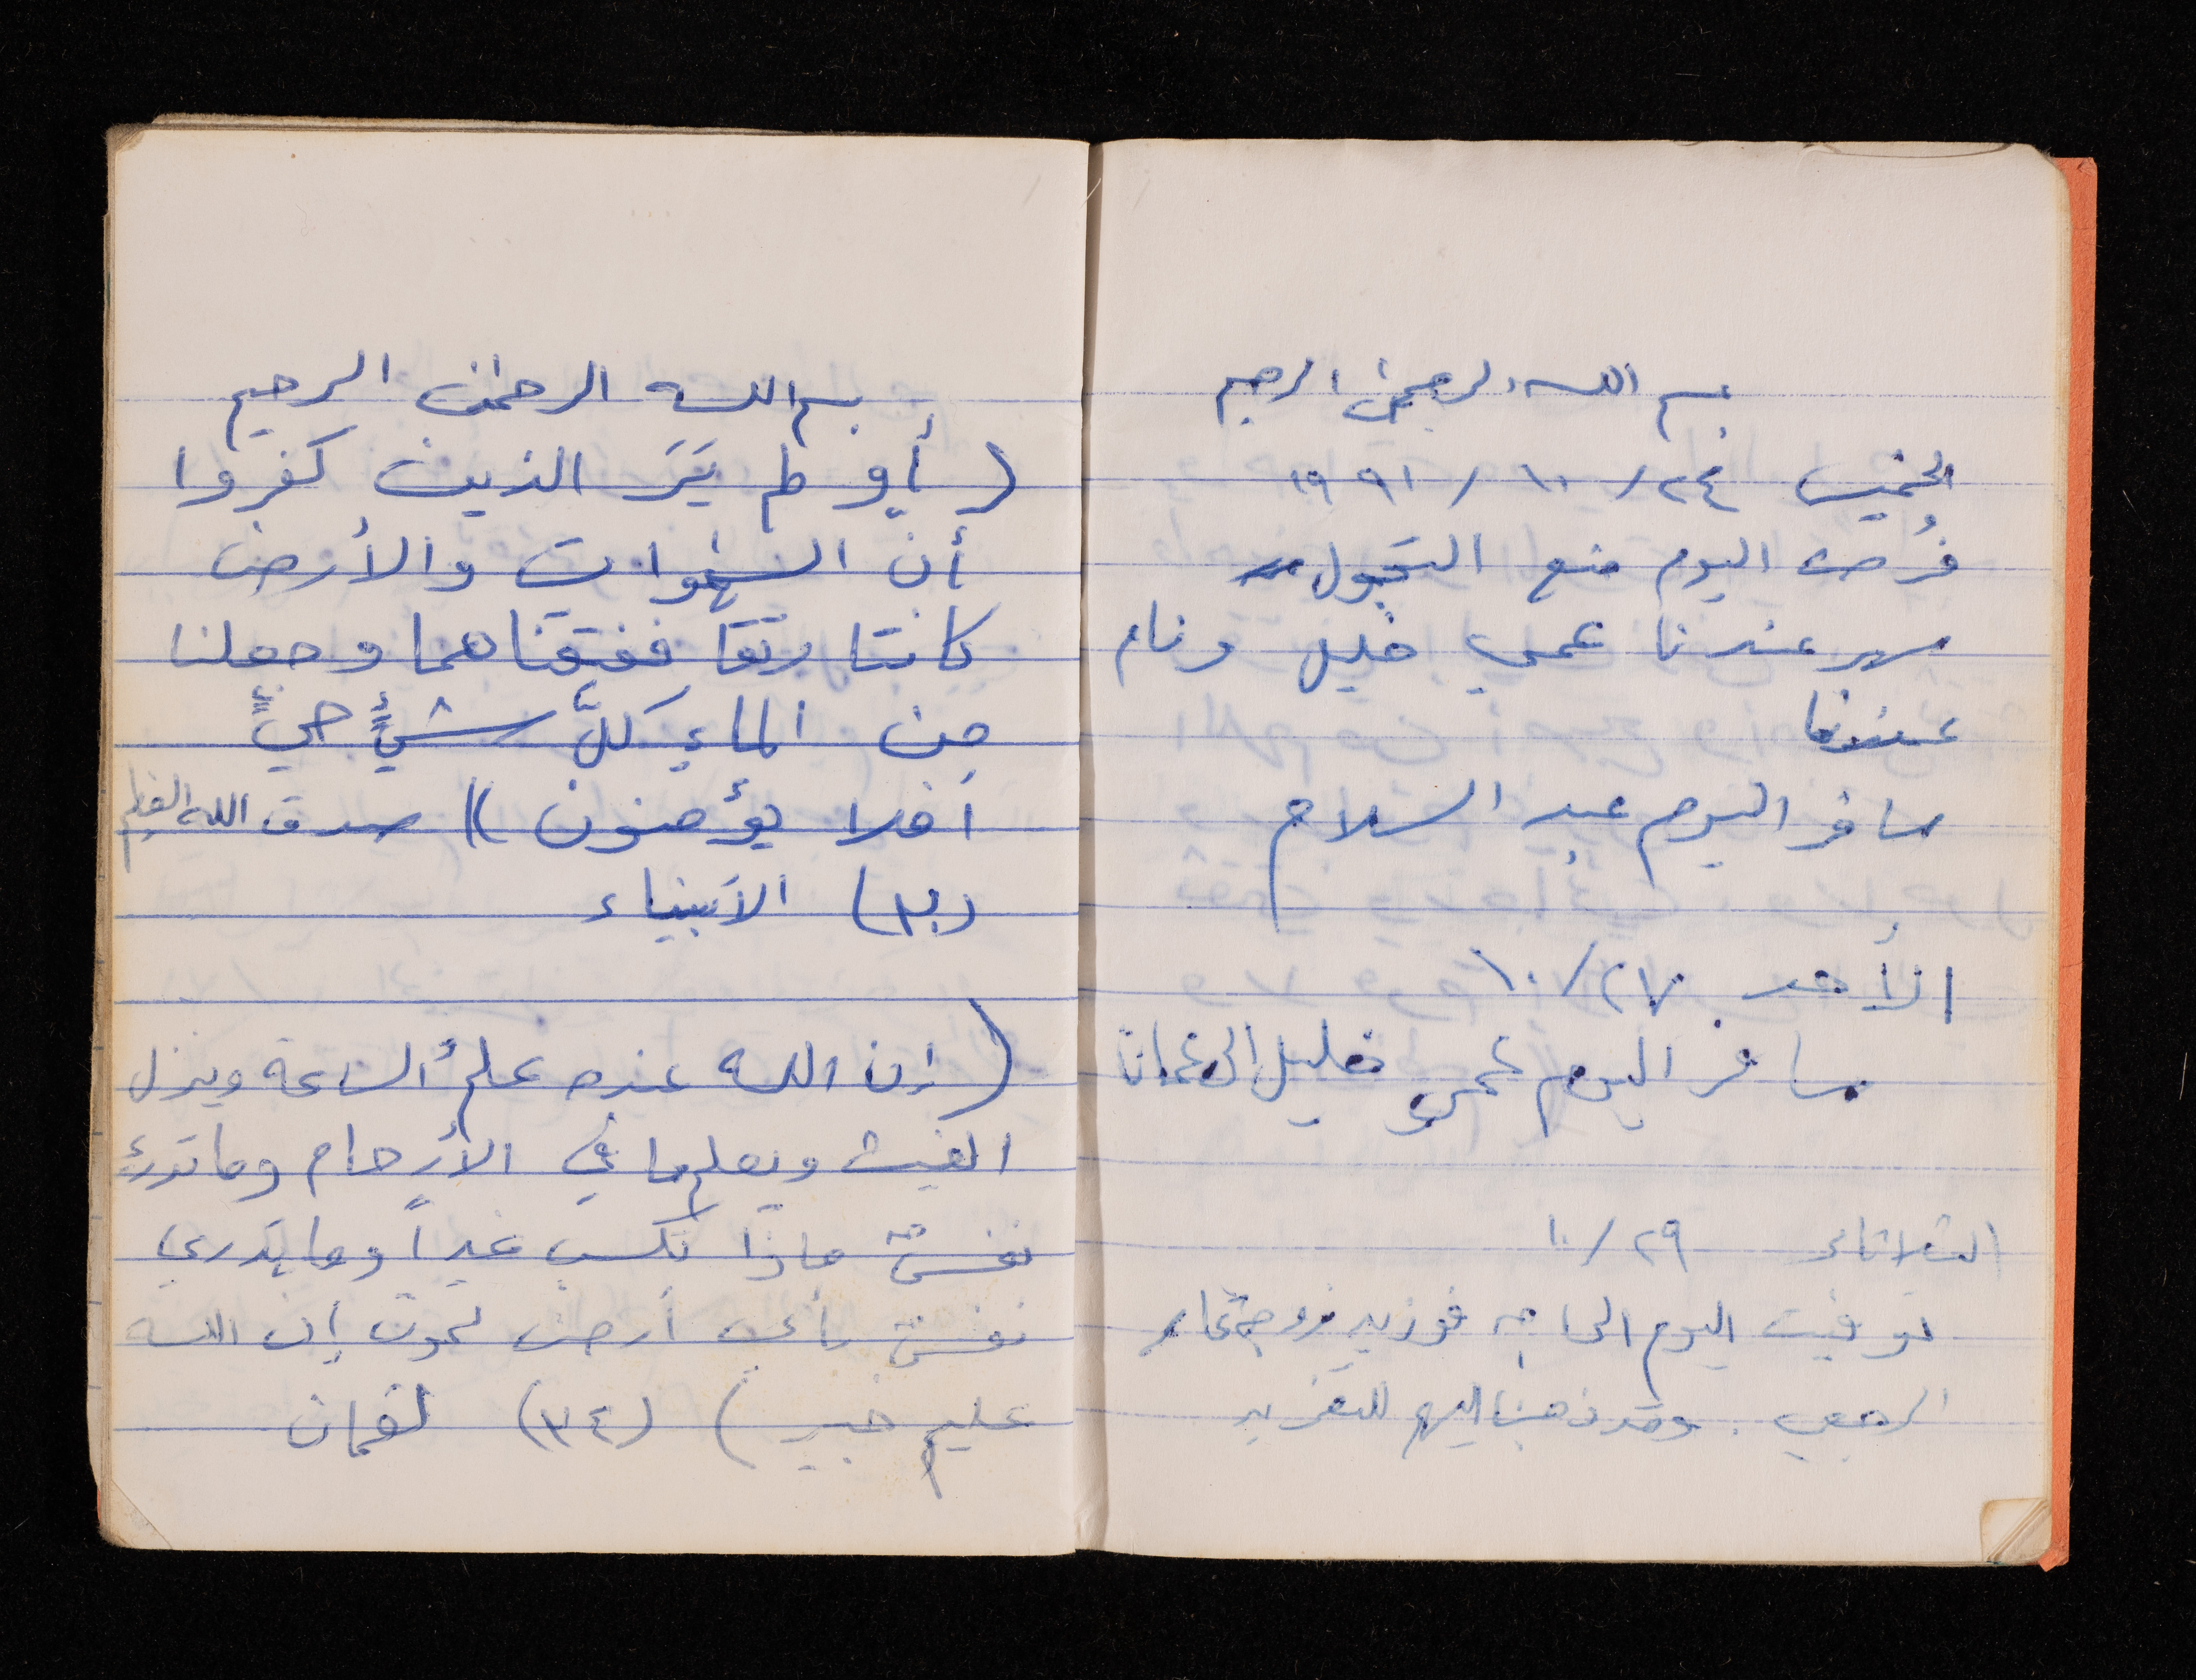 بسم الله الرحمن الرحيم
الخميس ٢٤/ ١٠/ ١٩٩١
فُرض اليوم منع التجول
سهر عندنا عمي خليل ونام
عندنا
سافر اليوم عبد السلام
الأحد ٢٧/ ١٠
سافر اليوم عمي خليل الى عمان
الثلاثاء ٢٩/ ١٠
توفيت اليوم الحاجه فوزيه زوجة
الرجبي. وقد ذهبنا اليهم للتعزيه
بسم الله الرحمن الرحيم
(أولم يَرَ الذين كفروا
أن السموات والأرض
كانتا رتقا ففتقناهما وجعلنا
مِن الماءِ كلَّ شيءٍ حيٍّ
أفلا يؤمنون)) صدق الله العظيم
(٣٠) الأنبياء
(إن الله عنده علمُ الساعة وينزل
الغيث ويعلم ما في الأرحام وما تدري
نفسٌ ماذا تكسب غداً وما تدري
نفسٌ بأي أرض تموت إن الله
عليم خبير) (٣٤) لقمان